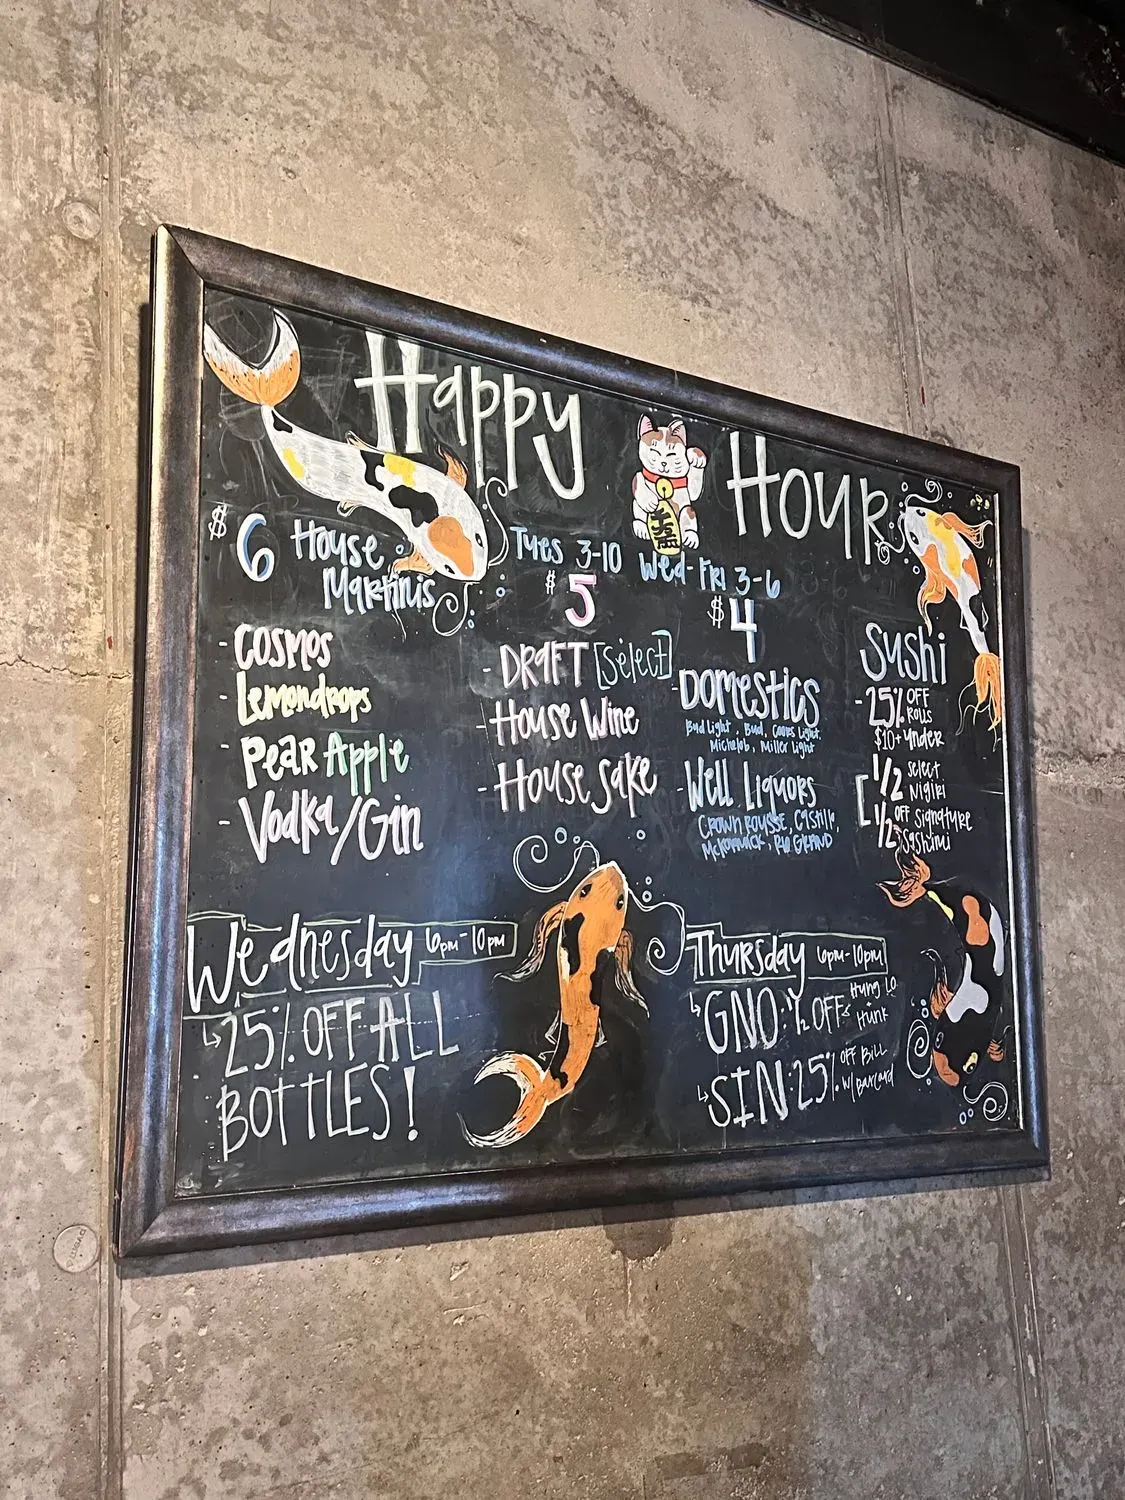 Happy Hour
Tues 3-10 Wed-Fri 3-6
$6 House
Martinis
- Cosmos
- Lemondrops
- Pear Apple
- Vodka/Gin
$5
- Draft [Select]
- House Wine
- House Sake
$4
- Domestics
Bud Light, Bud, Coors Light,
Michelob, Miller Light
- Well Liquors
Crown Rousse, Castillo,
McKormick, Rio Grand
Sushi
- 25% OFF
Rolls
$10 + under
[1/2 select
Nigiri
1/2 OFF Signature
Sashimi
Wednesday 6pm-10pm
↳ 25% OFF ALL
BOTTLES!
Thursday 6pm-10pm
↳ GNO: 1/2 OFF Hung Lo
+ Hunk
↳ SIN: 25% OFF Bill
w/ BarCard